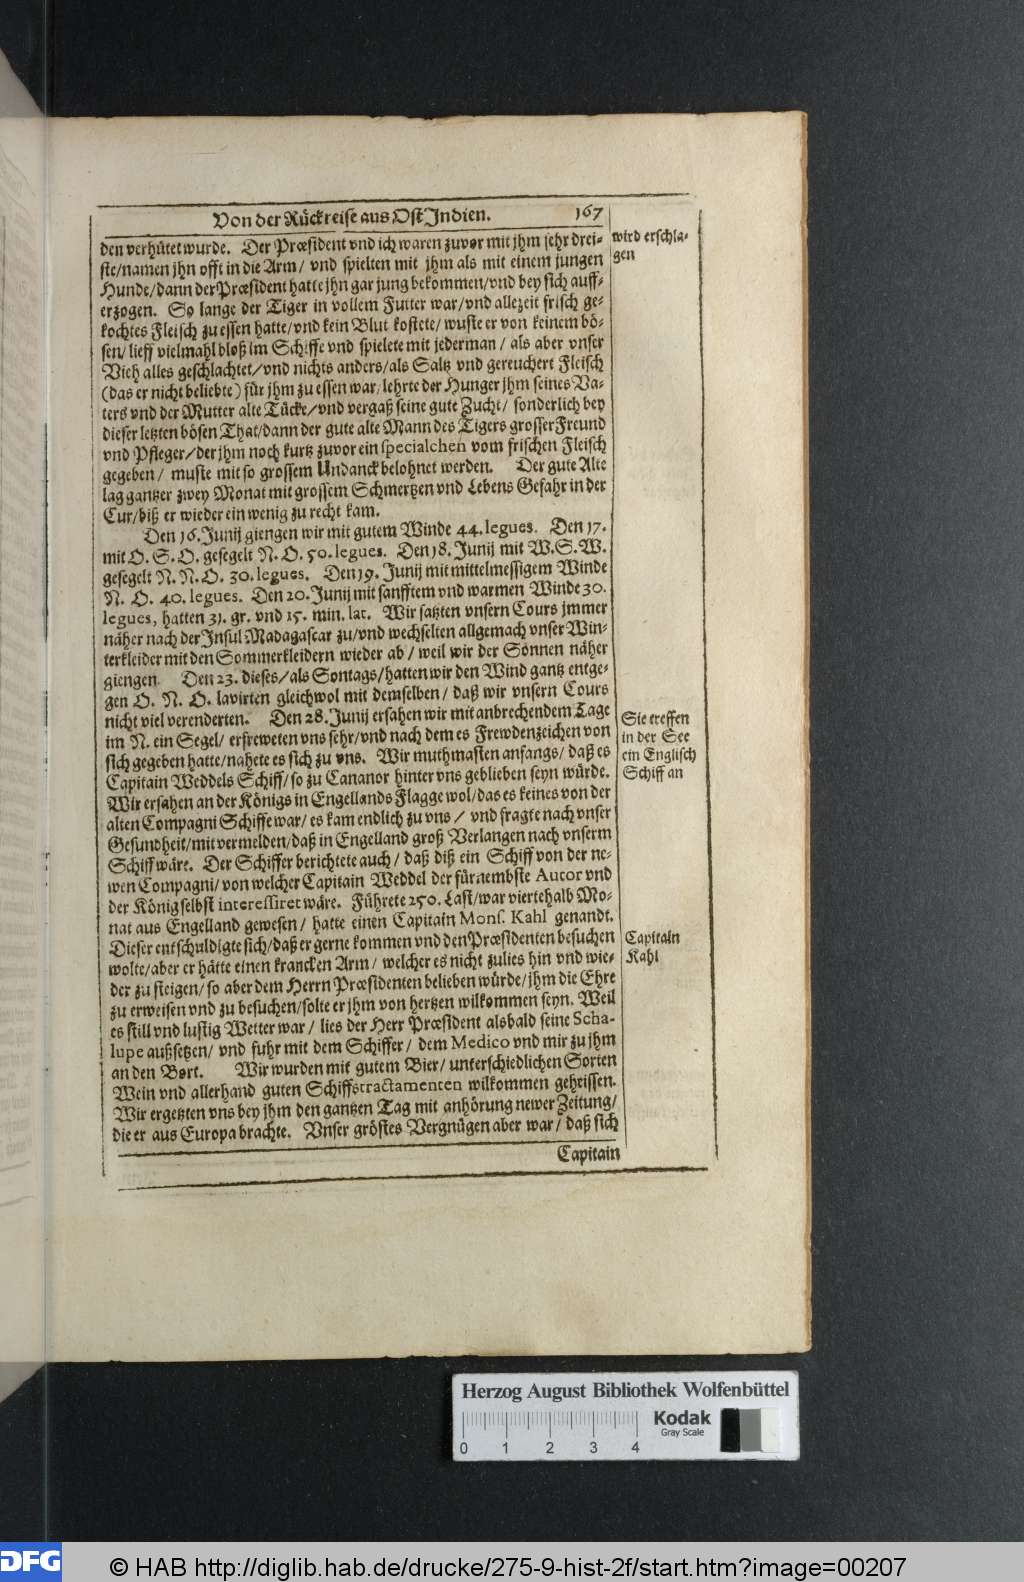 Von der Rückreise aus Ost Indien. 167
den verhütet wurde. Der Præsident vnd ich waren zuvor mit jhm sehr drei-
ste/namen jhn offt in die Arm/ vnd spielten mit jhm als mit einem jungen
Hunde/dann der Præsident hatte jhn gar jung bekommen/vnd bey sich auff-
erzogen. So lange der Tiger in vollem Futter war/vnd allezeit frisch ge-
kochtes Fleisch zu essen hatte/vnd kein Blut kostete/wuste er von keinem bö-
sen/lieff vielmahl bloß im Schiffe vnd spielete mit jederman/ als aber vnser
Vieh alles geschlachtet/vnd nichts anders/als Saltz vnd gereuchert Fleisch
(das er nicht beliebte) für jhm zu essen war/lehrte der Hunger jhm seines Va-
ters vnd der Mutter alte Tücke/vnd vergaß seine gute Zucht/ sonderlich bey
dieser letzten bösen That/dann der gute alte Mann des Tigers grosser Freund
vnd Pfleger/der jhm noch kurtz zuvor ein specialchen vom frischen Fleisch
gegeben/ muste mit so grossem Undanck belohnet werden. Der gute Alte
lag gantzer zwey Monat mit grossem Schmertzen vnd Lebens Gefahr in der
Cur/biß er wieder ein wenig zu recht kam.
Den 16. Junij giengen wir mit gutem Winde 44. legues. Den 17.
mit O. S. O. gesegelt N. O. 50. legues. Den 18. Junij mit W. S. W.
gesegelt N. N. O. 30. legues. Den 19. Junij mit mittelmessigem Winde
N. O. 40. legues. Den 20. Junij mit sanfftem vnd warmen Winde 30.
legues, hatten 31. gr. vnd 15. min. lat. Wir satzten vnsern Cours jmmer
näher nach der Insul Madagascar zu/vnd wechselten allgemach vnser Win-
terkleider mit den Sommerkleidern wieder ab/ weil wir der Sonnen näher
giengen. Den 23. dieses/als Sontags/hatten wir den Wind gantz entge-
gen O. N. O. lavirten gleichwol mit demselben/ daß wir vnsern Cours
nicht viel verenderten. Den 28. Junij ersahen wir mit anbrechendem Tage
im N. ein Segel/ erfreweten vns sehr/vnd nach dem es Frewdenzeichen von
sich gegeben hatte/nahete es sich zu vns. Wir muthmasten anfangs/ daß es
Capitain Weddels Schiff/so zu Cananor hinter vns geblieben seyn würde.
Wir ersahen an der Königs in Engellands Flagge wol/das es keines von der
alten Compagni Schiffe war/es kam endlich zu vns/ vnd fragte nach vnser
Gesundheit/mit vermelden/daß in Engelland groß Verlangen nach vnserm
Schiff wäre. Der Schiffer berichtete auch/ daß diß ein Schiff von der ne-
wen Compagni/von welcher Capitain Weddel der fürnembste Autor vnd
der König selbst interessiret wäre. Führete 250. Last/war viertehalb Mo-
nat aus Engelland gewesen/ hatte einen Capitain Mons. Kahl genandt.
Dieser entschuldigte sich/daß er gerne kommen vnd den Præsidenten besuchen
wolte/aber er hätte einen krancken Arm/ welcher es nicht zulies hin vnd wie-
der zu steigen/so aber dem Herrn Præsidenten belieben würde/jhm die Ehre
zu erweisen vnd zu besuchen/solte er jhm von hertzen wilkommen seyn. Weil
es still vnd lustig Wetter war/ lies der Herr Præsident alsbald seine Scha-
lupe außsetzen/ vnd fuhr mit dem Schiffer/ dem Medico vnd mir zu jhm
an den Bort. Wir wurden mit gutem Bier/ unterschiedlichen Sorten
Wein vnd allerhand guten Schiffstractamenten wilkommen geheissen.
Wir ergetzten vns bey jhm den gantzen Tag mit anhörung newer Zeitung/
die er aus Europa brachte. Vnser gröstes Vergnügen aber war/ daß sich
Capitain
wird erschla-
gen
Sie treffen
in der See
ein Englisch
Schiff an
Capitain
Kahl
Herzog August Bibliothek Wolfenbüttel
Kodak
Gray Scale
0 1 2 3 4
DFG
© HAB http://diglib.hab.de/drucke/275-9-hist-2f/start.htm?image=00207